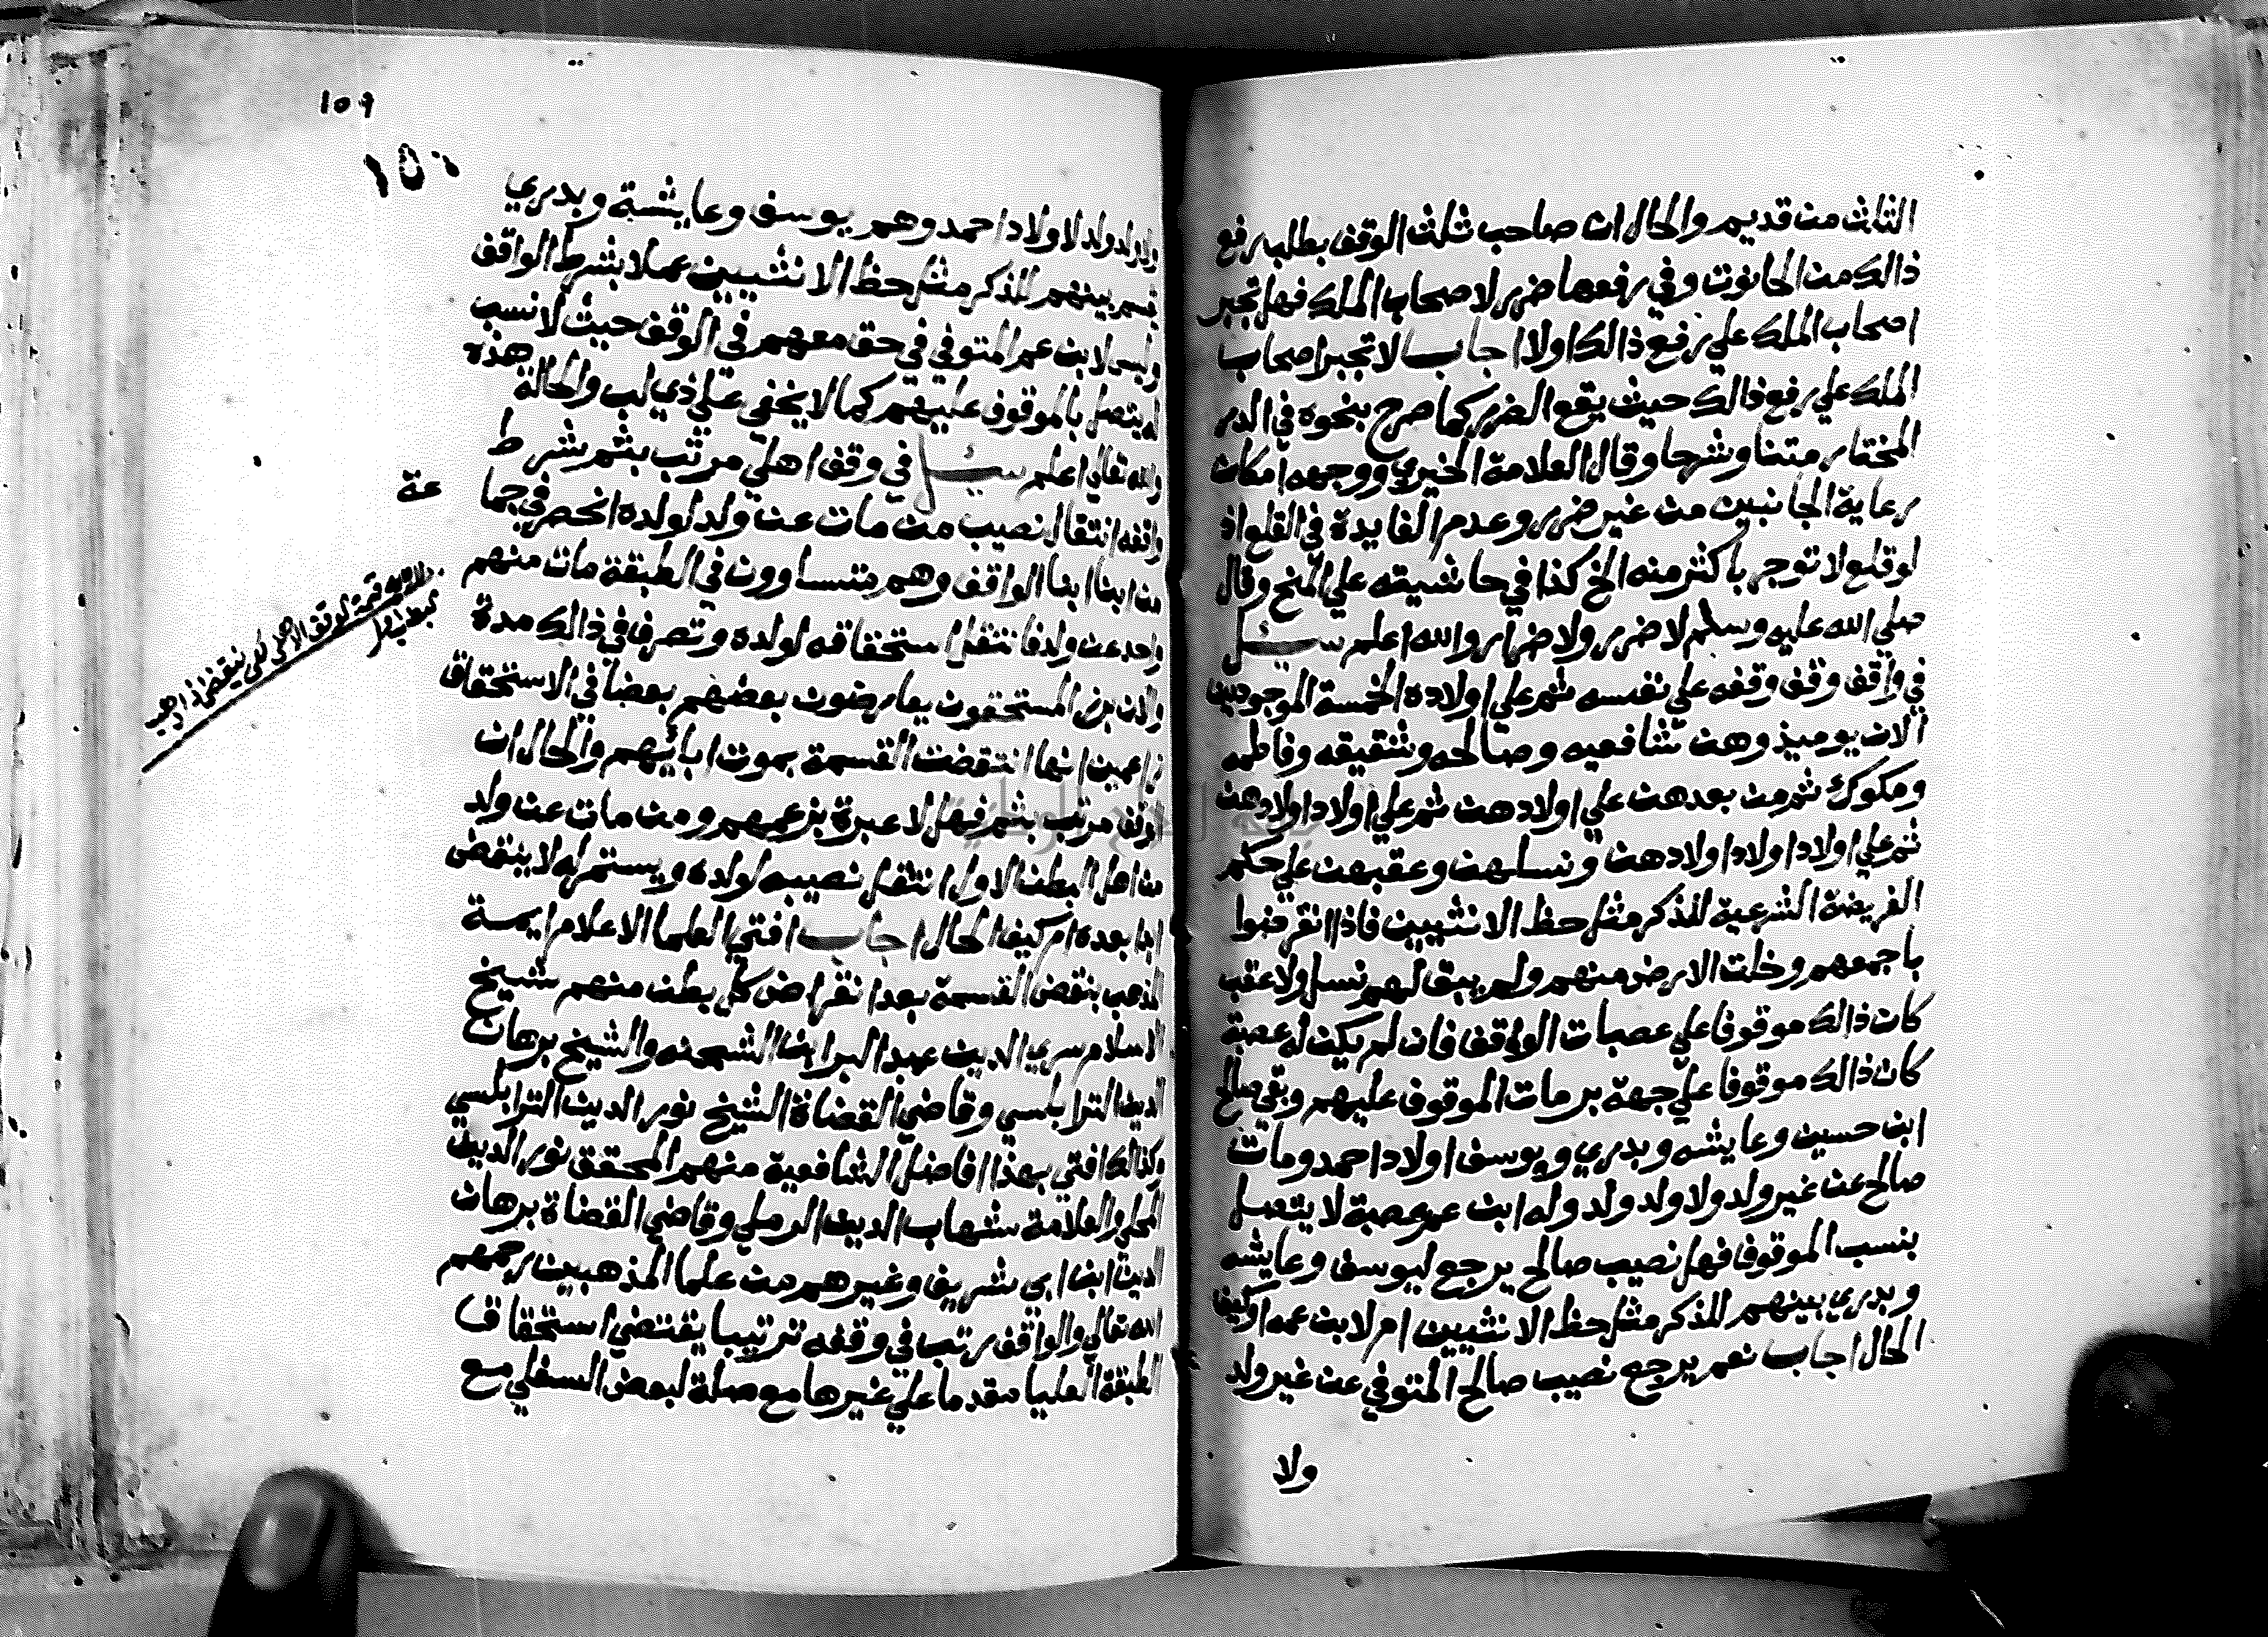 الثلث من قديم والحال ان صاحب ثلث الوقف بطلب رفع
ذالك من الحانوت وفي رفعها ضرر لاصحاب الملك فهل تجبر
اصحاب الملك علي رفع ذالك اولا اجاب لا تجبر اصحاب
الملك علي رفع ذالك حيث يقع الضرر كما صرح بنحوه في الدر
المختار متنا وشرحا وقال العلامة الخيري ووجهه امكان
رعاية الجانبين من غير ضرر وعدم الفايدة في القلع اذ
لو قلع لا توجر باكثر منه الخ كذا في حاشيته علي المنح وقال
صلي الله عليه وسلم لا ضرر ولا ضرار والله اعلم سيل
في واقف وقف وقفه علي نفسه ثم علي اولاده الخمسة الموجودين
الان يوميذ وهن شافعيه وصالحه وشقيقه وفاطمه
ومكوك ثم من بعدهن علي اولادهن ثم علي اولاد اولادهن
ثم علي اولاد اولاد اولادهن ونسلهن وعقبهن علي حكم
الفريضة الشرعية للذكر مثل حظ الانثيين فاذا انقرضوا
باجمعهم وخلت الارض منهم ولم يبق لهم نسل ولا عقب
كان ذالك موقوفا علي عصبات الواقف فان لم يكن له عصبة
كان ذالك موقوفا علي جهة بر مات الموقوف عليهم وبقي صالح
ابن حسين وعايشه وبدري ويوسف اولاد احمد ومات
صالح عن غير ولد ولا ولد ولد وله ابن عم عصبة لا يتصل
بنسب الموقوف فهل نصيب صالح يرجع ليوسف وعايشه
وبدري بينهم للذكر مثل حظ الانثيين ام لابن عمه او كيف
الحال اجاب نعم يرجع نصيب صالح المتوفي عن غير ولد
ولا
١٥٩
١٥٠
ولا ولد ولد لاولاد احمد وهم يوسف وعايشة وبدري
يقسم بينهم للذكر مثل حظ الانثيين عملا بشرط الواقف
وليس لابن عم المتوفي في حق معهم في الوقف حيث لا نسب
له يتصل بالموقوف عليهم كما لا يخفي علي ذي لب والحالة هذه
والله تعالي اعلم سيل في وقف اهلي مرتب بثم بشرط
واقفه انتقال نصيب من مات عن ولد لولده انحصر في جما
عة
من ابنا ابنا الواقف وهم متساوون في الطبقة مات منهم
واحد عن ولد فانتقل استحقاقه لولده وتصرف في ذالك مدة
والان برز المستحقون يعارضون بعضهم بعضا في الاستحقاق
زاعمين انها انتقضت القسمة بموت ابايهم والحال ان
الوقف مرتب بثم فهل لا عبرة بزعمهم ومن مات عن ولد
من اهل البطن الاول انتقل نصيبه لولده ويستمر له لا ينتقض
ابدا بعده ام كيف الحال اجاب افتي العلما الاعلام ايمة
المذهب بنقض القسمة بعد انقراض كل بطن منهم شيخ
الاسلام سري الدين عبد البر ابن الشحنه والشيخ برهان
الدين الترابلسي وقاضي القضاة الشيخ نور الدين الترابلسي
وكذالك افتي بهذا افاضل الشافعية منهم المحقق نور الدين
المحلي والعلامة شهاب الدين الرملي وقاضي القضاة برهان
الدين ابن ابي شريف وغيرهم من علما المذهبين رحمهم
الله تعالي والواقف رتب في وقفه ترتيبا يقتضي استحقاق
الطبقة العليا مقدما علي غيرها مع صلة لبعض السفلي مع